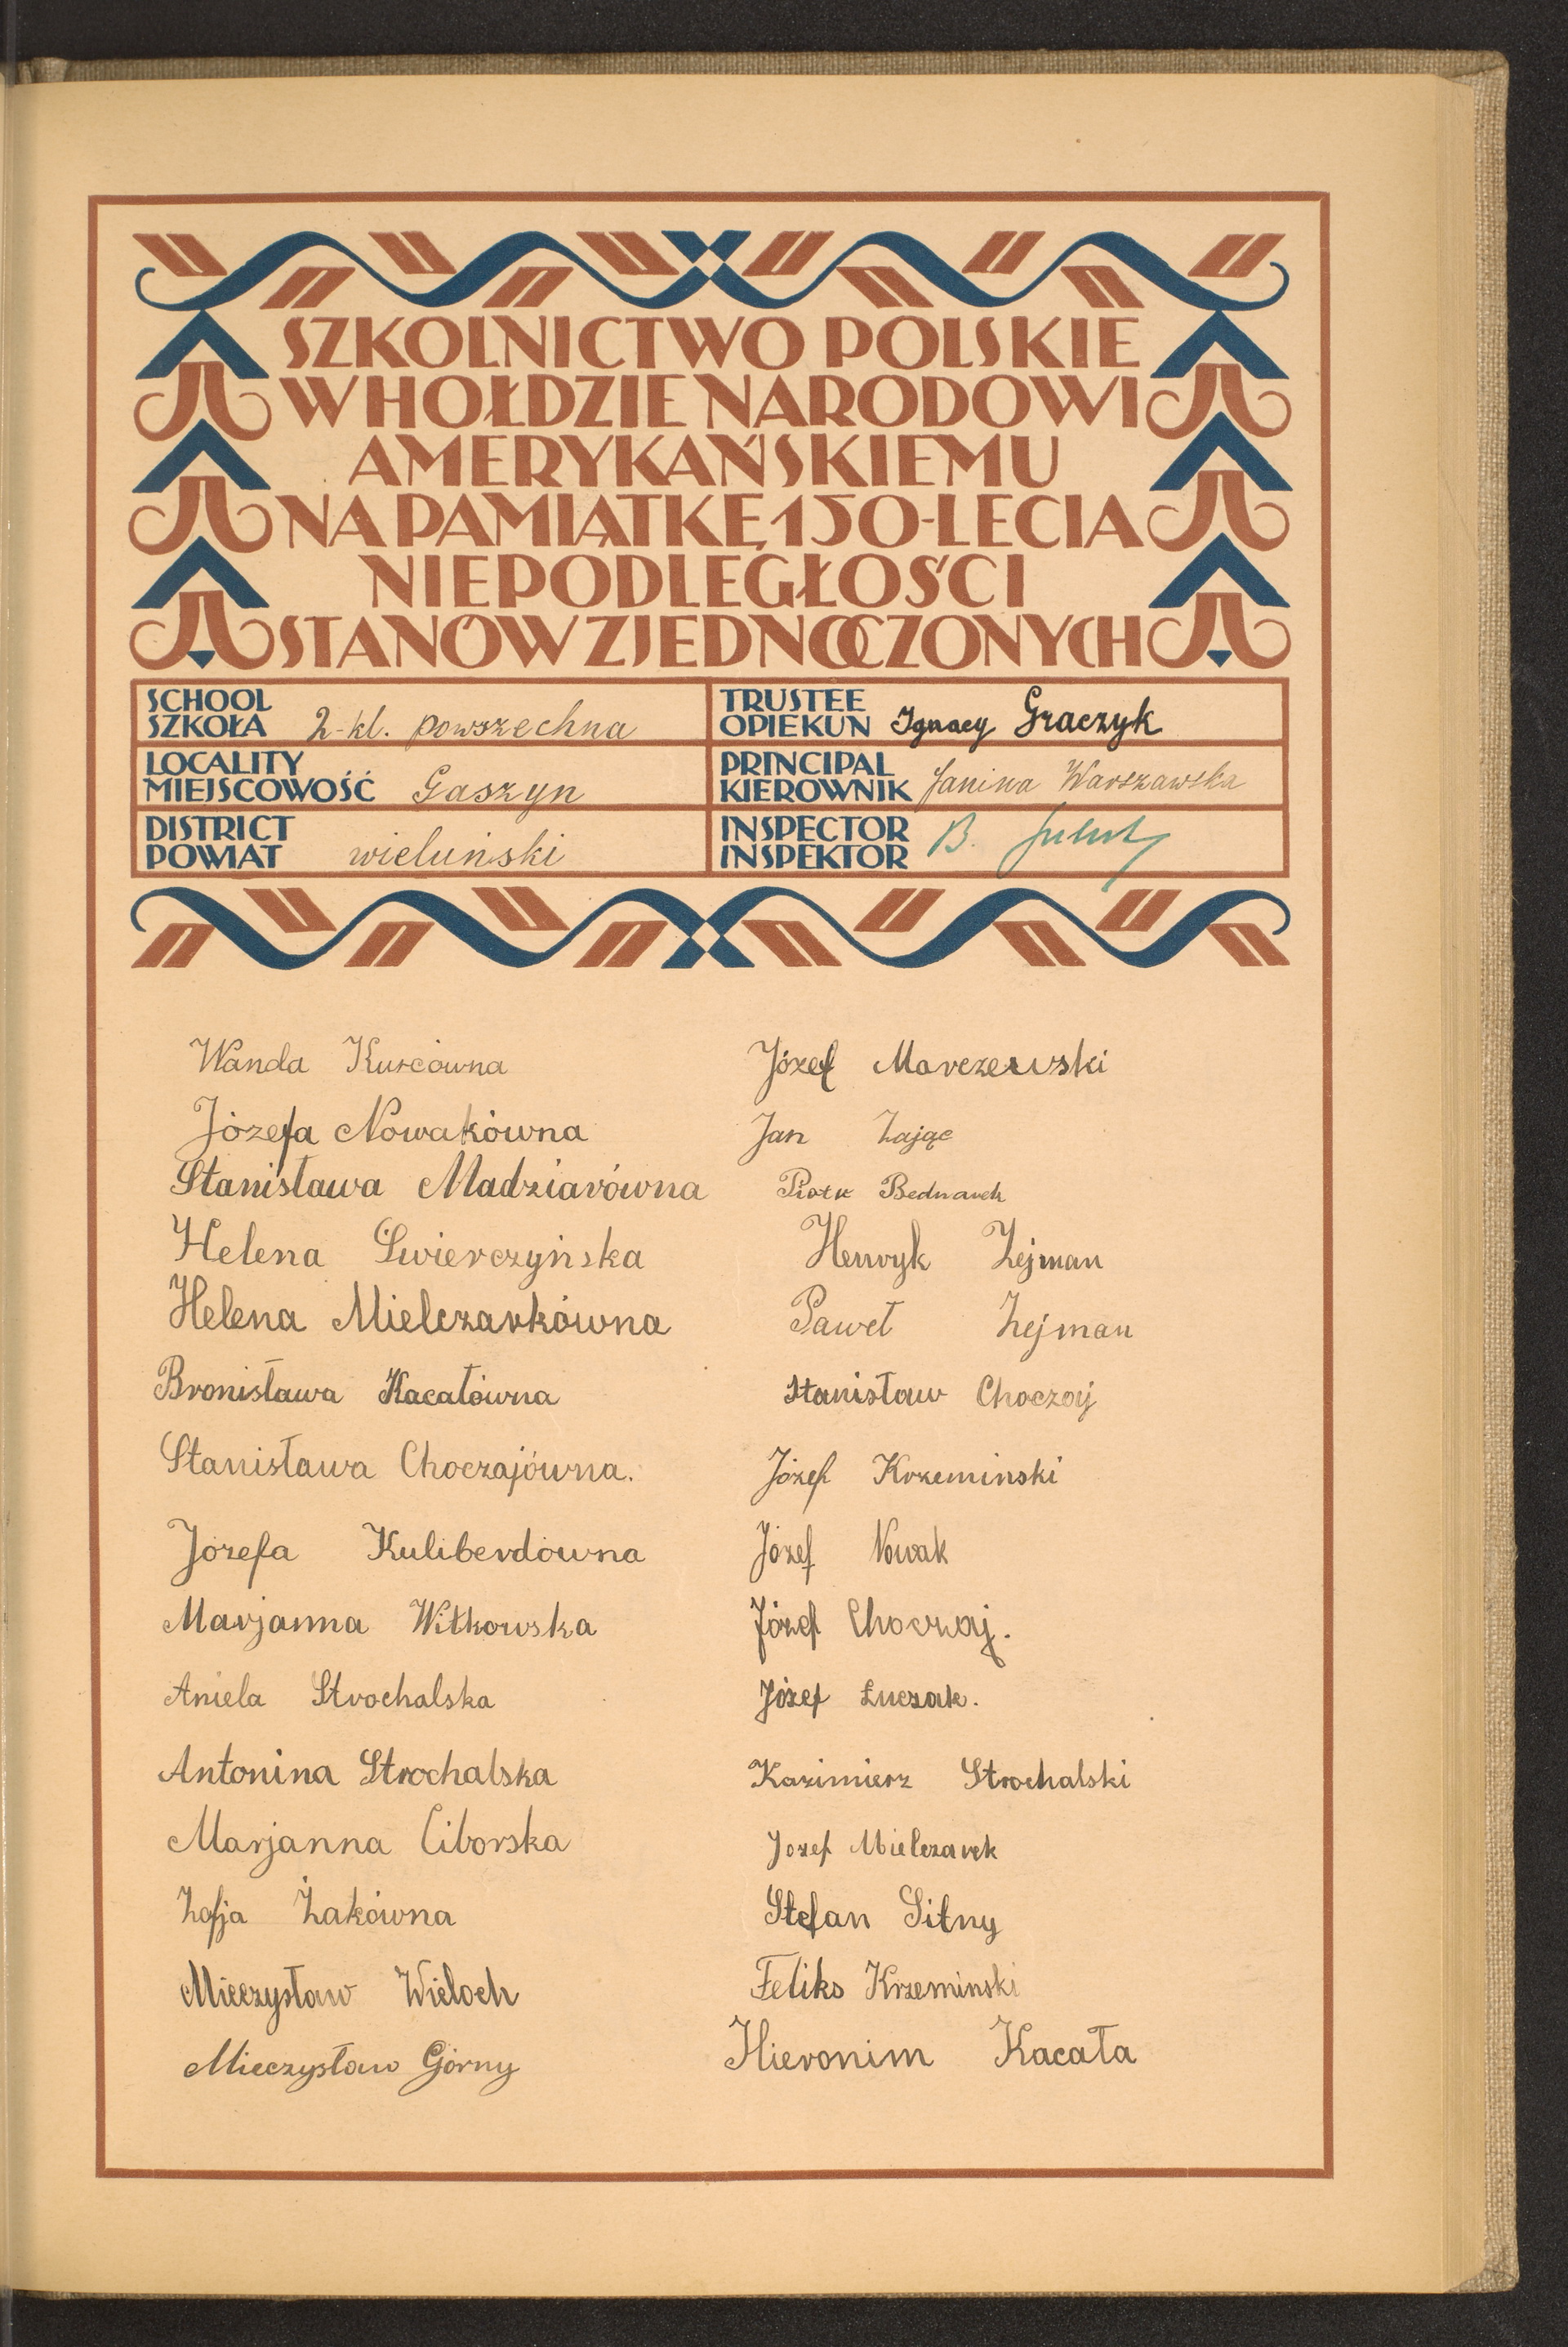 SZKOLNICTWO POLSKIE
W HOŁDZIE NARODOWI
AMERYKAŃSKIEMU
NA PAMIĄTKĘ 150-LECIA
NIEPODLEGŁOŚCI
STANÓW ZJEDNOCZONYCH
SCHOOL
SZKOŁA 2-kl. powszechna
LOCALITY
MIEJSCOWOŚĆ Gaszyn
DISTRICT
POWIAT wieluński
TRUSTEE
OPIEKUN Ignacy Graczyk
PRINCIPAL
KIEROWNIK Janina Warszawska
INSPECTOR
INSPEKTOR B.
Wanda Kurcówna
Józefa Nowakówna
Stanisława Madziarówna
Helena Świerczyńska
Helena Mielczarkówna
Bronisława Kacałówna
Stanisława Choczajówna.
Józefa Kuliberdówna
Marjanna Witkowska
Aniela Strochalska
Antonina Strochalska
Marjanna Ciborska
Zofja Żakówna
Mieczysław Wieloch
Mieczysław Górny
Józef Marczewski
Jan Zając
Piotr Bednarek
Henryk Zejman
Paweł Zejman
Stanisław Choczaj
Józef Krzeminski
Józef Nowak
Józef Choczaj.
Józef Łuczak.
Kazimierz Strochalski
Jozef Mielczarek
Stefan Sitny
Feliks Krzeminski
Hieronim Kacała